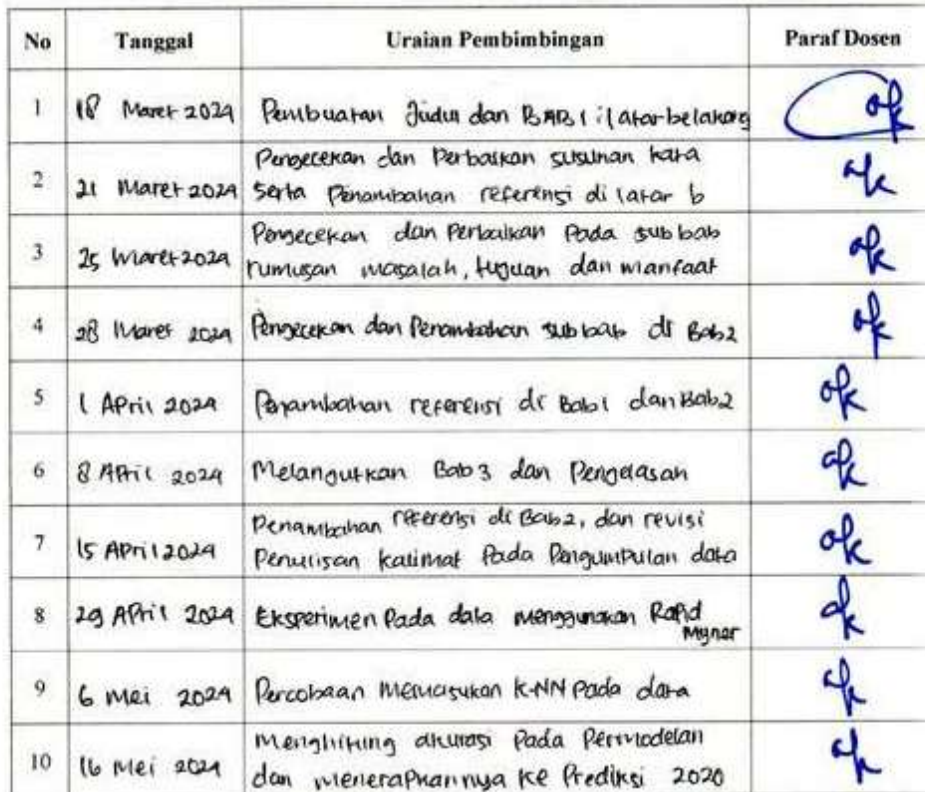 No Tanggal Uraian Pembimbingan Paraf Dosen
1 18 Maret 2024 Pembuatan Judul dan BAB 1 : latar belakang
Pengecekan dan Perbaikan susunan kata
2 21 Maret 2024 serta Penambahan referensi di latar b
Pengecekan dan Perbaikan Pada sub bab
3 25 Maret 2024 rumusan masalah, tujuan dan manfaat
4 28 Maret 2024 Pengecekan dan Penambahan sub bab di Bab2
5 1 April 2024 Penambahan referensi di Bab1 dan Bab2
6 8 April 2024 Melanjutkan Bab 3 dan Penjelasan
Penambahan referensi di Bab2, dan revisi
7 15 April 2024 Penulisan kalimat Pada Pengumpulan data
8 29 April 2024 Eksperimen Pada data menggunakan Rapid
Myner
9 6 Mei 2024 Percobaan Memasukan K-NN Pada data
Menghitung akurasi Pada Permodelan
10 16 Mei 2024 dan menerapkannya ke Prediksi 2020